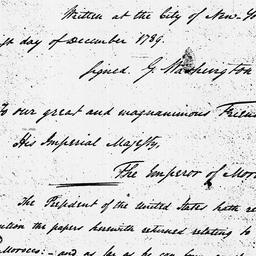 Written at the City of New-Yo
st day of December 1789.
Signed. G. Washington
To our great and magnanimous Friend
His Imperial Majesty,
The Emperor of Moro
The President of the United States hath re
ution the papers herewith returned relating to
Morocco:- and as far as he can